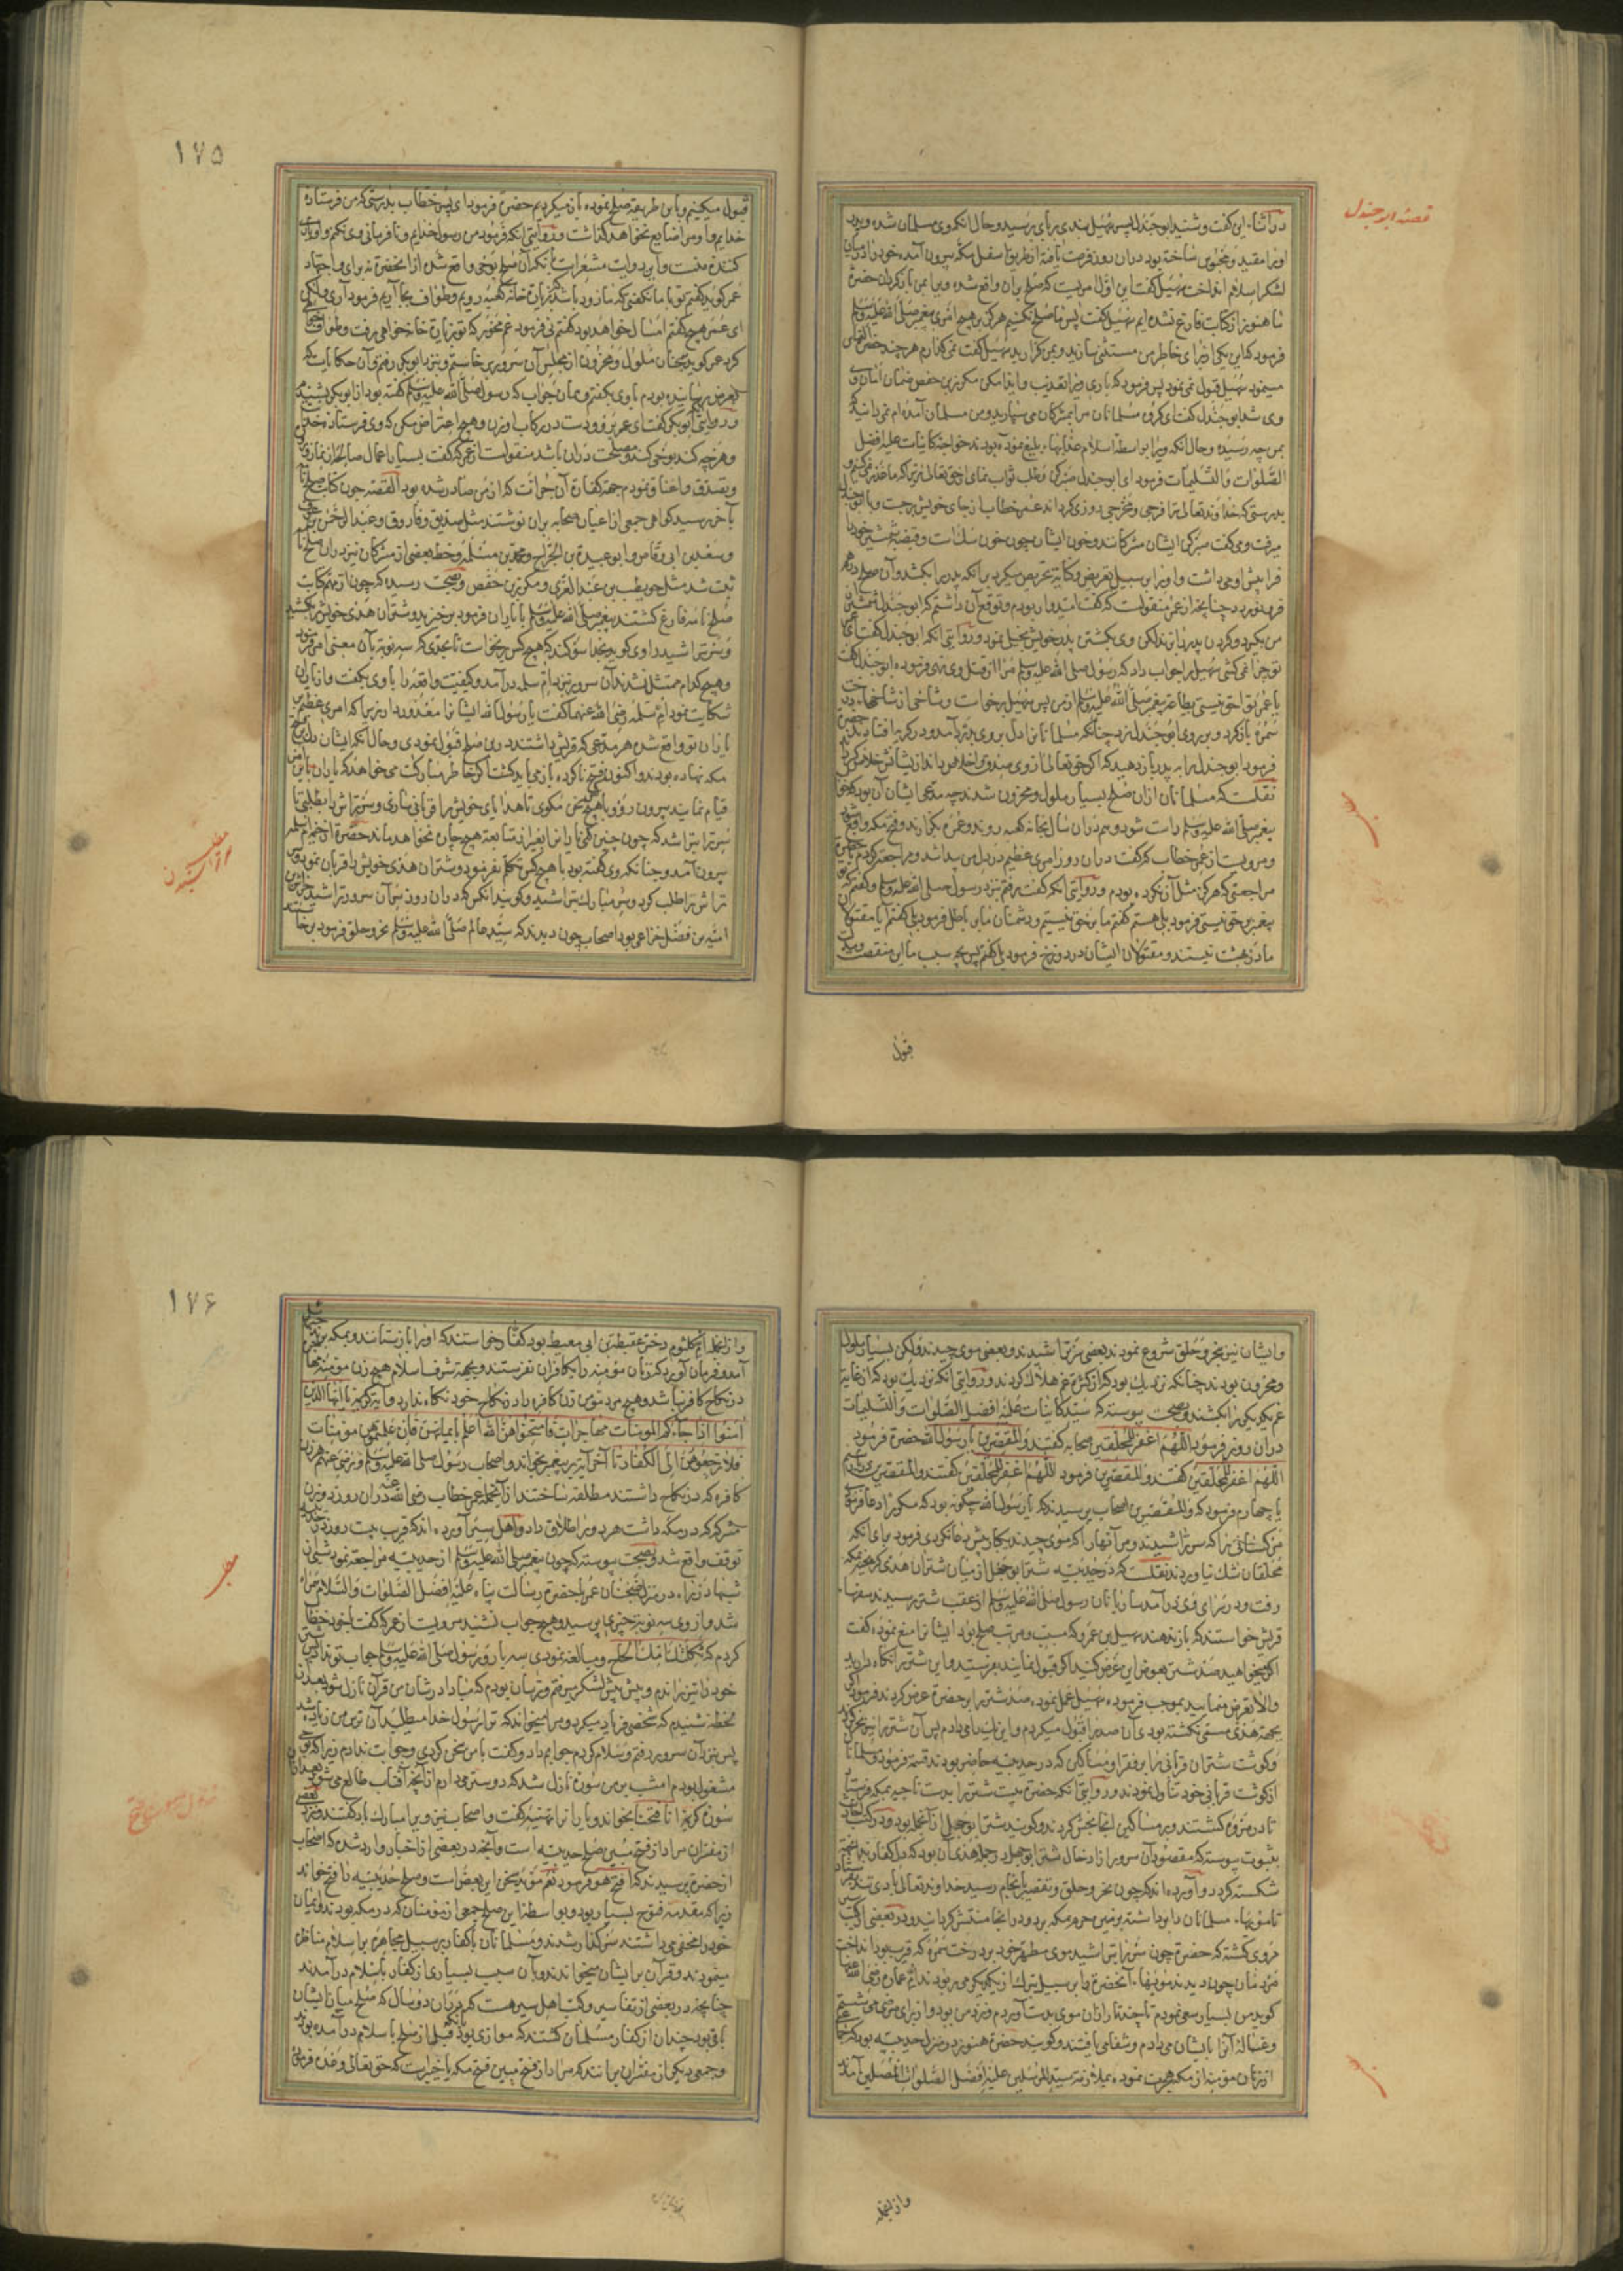 قصه ابو جندل
در اثناء این گفت و شنید ابو جندل پسر سهیل بندی بر پای برسید و حال آنکه وی مسلمان شده و پدر
او را مقید و محبوس ساخته بود در آن روز فرصت یافته از طریق اسفل مکه بیرون آمده خود را در میان
لشکر اسلام انداخت سهیل گفت این اول امریست که صلح بر آن واقع شده ویرا بمن باز گردان حضرت
ما هنوز از کتاب فارغ نشده ایم سهیل گفت پس ما صلح نکنیم هرگز بر هیچ امری پیغمبر صلی الله علیه وسلم
فرمود که این یکی از برای خاطر من مستثنی سازید و بمن گذارید سهیل گفت نمی گذارم هر چند حضرت
مینمود سهیل قبول نمی نمود پس فرمود که باری ویرا تعذیب و ایذا مکن مکرز بن حفص ضمان امان
وی شد ابو جندل گفت ای گروه مسلمانان مرا بمشرکان می سپارید و من مسلمان آمده ام نمی دانید که
بمن چه رسیده و حال آنکه ویرا بواسطه اسلام عذابهاء بلیغ نموده بودند خواجه کاینات علیه افضل
الصلوات و التسلیمات فرمود ای ابو جندل صبر کن و طلب ثواب نمای از حق تعالی
بدرستی که خداوند تعالی ترا فرجی و مخرجی روزی گرداند عمر خطاب از جای خویش برجست و با ابو جندل
میرفت و می گفت صبر کن ایشان مشرکانند و خون ایشان چون خون سگ است و قبضه شمشیر خود را
فرا پیش او می داشت و او را بر سبیل تعریض و کنایه تحریص میکرد بر آنکه پدر را بکشد و آن صلح
از عمر منقولست که گفت امیدوار بودم و توقع آن داشتم که ابو جندل شمشیر
من بگیرد و گردن پدر را بزند لکن وی بکشتن پدر خویش بخیلی نمود و روایتی آنکه ابو جندل گفت ای عمر
تو چرا نمی کشی سهیل را جواب داد که رسول صلی الله علیه وسلم مرا از قتل وی نهی فرموده ابو جندل گفت
یا عمر تو احق نیستی بطاعت پیغمبر صلی الله علیه وسلم از من پس سهیل برخواست و شاخی از شاخهاء درخت
سمره باز کرد و بر روی ابو جندل زد چنانکه مسلمانانرا دل بر وی بدرد آمد و در گریه افتادند
فرمود ابو جندل را به پدر باز دهید که اگر حق تعالی از وی صدق و اخلاص داند از ایشانش خلاص
نقلست که مسلمانان از آن صلح بسیار ملول و محزون شدند چه مدعی ایشان آن بود که خواب
پیغمبر صلی الله علیه وسلم راست شود و هم در آن سال بخانه کعبه روند و عمره بگذارند و فتح مکه واقع شود
و مرویست از عمر خطاب که گفت در آن روز امری عظیم در دل من پیدا شد و مراجعت کردم با حضرت
مراجعتی که هرگز مثل آن نکرده بودم و روایتی آنکه گفت برفتم نزد رسول صلی الله علیه وسلم و گفتم که تو
پیغمبر بحق نیستی فرمود بلی هستم گفتم ما بر حق نیستیم و دشمنان ما بر باطل فرمود بلی گفتم آیا مقتولان
ما در بهشت نیستند و مقتولان ایشان در دوزخ فرمود بلی گفتم پس بچه سبب ما این منقصت و مذلت
قبول
۱۷۵
قبول میکنیم و باین طریقه صلح نموده باز میگردیم حضرت فرمود ای پسر خطاب بدرستی که من فرستاده
خدایم و او مرا ضایع نخواهد گذاشت و روایتی آنکه فرمود من رسول خدایم و نافرمانی وی نکنم و او یاری
کننده منست و این روایت مشعر است بآنکه آن صلح بوحی واقع شده از آنحضرت نه برای و اجتهاد
عمر گوید گفتم تو با ما نگفتی که ما زود باشد که بزیارت خانه کعبه رویم و طواف بجا آریم فرمود آری و لیکن
ای عمر هیچ گفتم امسال خواهد بود گفتم نی فرمود غم مخور که تو بزیارت خانه خواهی رفت و طواف خواهی
کرد عمر گوید همچنان ملول و محزون از مجلس آن سرور برخاستم و نزد ابو بکر رفتم و آن حکایات که
بعرض رسانیده بودم با وی بگفتم و همان جواب که رسول صلی الله علیه وسلم گفته بود از ابو بکر شنیدم
و روایتی ابو بکر گفت ای عمر برو و دست در رکاب او زن و هیچ اعتراض مکن که وی فرستاده خدای
و هر چه کند بوحی کند و مصلحت در آن باشد منقولست از عمر که گفت بسیار اعمال صالحه از نماز و روزه
و تصدق و اعتاق نمودم جهة کفارت آن جرأت که از من صادر شده بود القصه چون کتاب صلح نامه
بآخر رسید گواهی جمعی از اعیان صحابه بر آن نوشتند مثل صدیق و فاروق و عبد الرحمن بن عوف
و سعد بن ابی وقاص و ابو عبیده بن الجراح و محمد بن مسلمه و خط بعضی از مشرکان نیز در آن صلح نامه
ثبت شد مثل حویطب بن عبد العزی و مکرز بن حفص و بصحت رسیده که چون از مهم کتابت
صلح نامه فارغ گشتند پیغمبر صلی الله علیه وسلم با یاران فرمود برخیزید و شتران هدی خویش را بکشید
و سر بتراشید راوی گوید بخدا سوگند که هیچ کس برنخاست تا بحدی که سه نوبت بآن معنی امر فرمود
و هیچ کدام ممتثل نشدند آن سرور نزد ام سلمه در آمد و کیفیت واقعه را با وی بگفت و از یاران
شکایت نمود ام سلمه رضی الله عنها گفت یا رسول الله ایشانرا معذور دار زیرا که امری عظیم بر
یاران تو واقع شده هر مدعی که قریش داشتند در این صلح قبول نمودی و حال آنکه ایشان دل بر فتح
مکه نهاده بودند و اکنون فتح ناکرده باز می باید گشت اگر خاطر مبارکت می خواهد که یاران باین امر
قیام نمایند بیرون رو و با هیچ کس سخن مگوی تا هدایای خویش را قربانی سازی و سر تراش را بطلبی تا
سر ترا بتراشد که چون چنین کنی یارانرا بغیر از متابعت هیچ چاره نخواهد ماند حضرت از خیمه ام سلمه
بیرون آمد و چنانکه وی گفته بود با هیچ کس تکلم نفرمود و شتران هدی خویش را قربان نمود و سر
تراش را طلب کرد و سر مبارک بتراشید و گویند آنکس که در آن روز سر آن سرور تراشید خراش بن
امیه بن فضل خزاعی بود اصحاب چون دیدند که سید عالم صلی الله علیه وسلم نحر و حلق فرمود برخاستند
و ایشان نیز بنحر و حلق شروع نمودند بعضی سر تراشیدند و بعضی موی چیدند و لکن بسیار ملول
و محزون بودند چنانکه نزدیک بود که از کثرت غم هلاک گردند و روایتی آنکه نزدیک بود که از غایت
غم یکدیگر را بکشند و بصحت پیوسته که سید کاینات علیه افضل الصلوات و التسلیمات
در آن روز فرمود اللهم اغفر للمحلقین صحابه گفتند و المقصرین یا رسول الله حضرت فرمود
اللهم اغفر للمحلقین گفتند و المقصرین فرمود اللهم اغفر للمحلقین گفتند و المقصرین در سیم
یا چهارم فرمود که و المقصرین اصحاب پرسیدند که یا رسول الله چگونه بود که مکرر دعا فرمودی
مر کسانی را که سر تراشیدند و مر آنها را که موی چیدند یکبار بیش دعا نکردی فرمود برای آنکه
محلقان شک نیاوردند نقلست که در حدیبیه شتر ابو جهل از میان شتران هدی گریخته بمکه
رفت و در سرای وی در آمد ساربانان رسول صلی الله علیه وسلم از عقب شتر برسیدند سفهاء
قریش خواستند که باز ندهند سهیل بن عمرو که مسبب و مرتب صلح بود ایشانرا منع نموده گفت
اگر میخواهید صد شتر بعوض این عرض کنید اگر قبول نمایند بفرستید و این شتر را نگاه دارید
والا تعرض منمایید بموجب فرموده سهیل عمل نموده صد شتر را بر حضرت عرض کردند فرمود اگر
بجهة هدی مسمی نگشته بودی آن صد را قبول میکردم و این یک را می دادم پس آن شتر را نیز نحر کردند
و گوشت شتران قربانی را بر فقرا و مساکین که در حدیبیه حاضر بودند قسمت فرمود و مسلمانان
از گوشت قربانی خود تناول نمودند و روایتی آنکه حضرت بیست شتر را بدست ناجیه بمکه فرستاد
تا در مروه کشتند و بر مساکین آنجا بخش کردند و گویند شتر ابو جهل از آنجمله بود و در کتب احادیث
بثبوت پیوسته که مقصود آن سرور از ادخال شتر ابو جهل در جمله هدی آن بود که دل کفار
شکسته گردد و آورده اند که چون نحر و حلق و تقصیر بانجام رسید خداوند تعالی بادی تند بفرستاد
تا مویهاء مسلمانان را برداشته بزمین حرم مکه برد و در آنجا منتشر گردانید و در بعضی از کتب
مروی گشته که حضرت چون سر را بتراشید موی مطهر خود بر درخت سمره که قریب بود انداخت
مردمان چون دیدند مویهاء آنحضرت را بر سبیل تبرک از یکدیگر می ربودند ام عماره رضی الله عنها
گوید من بسیار سعی نمودم تا چند تار از آن موی بدست آوردم و نزد من بود و از برای مرضی می شستم
و غساله آنرا بایشان می دادم و شفا می یافتند و گویند حضرت هنوز در منزل حدیبیه بود که جمعی
از زنان مومنه از مکه هجرت نموده بملازمت سید المرسلین علیه افضل الصلوات المصلین آمدند
و از آنجمله
۱۷۶
و از آنجمله ام کلثوم دختر عقبة بن ابی معیط بود کفار خواستند که او را باز ستانند و بمکه برند جبرئیل
آمد و فرمان آورد که زنان مومنه را بکافران نفرستند و بجهة شرف اسلام هیچ زن مومنه
در نکاح کافر نباشد و هیچ مرد مومن زن کافره را در نکاح خود نگاه ندارد و آیه کریمه یا ایها الذین
آمنوا اذا جاءکم المومنات مهاجرات فامتحنوهن الله اعلم بایمانهن فان علمتموهن مومنات
فلا ترجعوهن الی الکفار تا آخر آیه بر پیغمبر بخواند و اصحاب رسول صلی الله علیه وسلم و رضی عنهم هر زن
کافره که در نکاح داشتند مطلقه ساختند از آنجمله عمر خطاب رضی الله عنه در آن روز دو زن
مشرکه که در مکه داشت هر دو را طلاق داد و اهل سیر آورده اند که قریب بیست روز در حدیبیه
توقف واقع شد و بصحت پیوسته که چون پیغمبر صلی الله علیه وسلم از حدیبیه مراجعت نمود شبی از
شبها در راه در منزل ضجنان عمر با حضرت رسالت پناه علیه افضل الصلوات و السلام همراه
شد و از وی سه نوبت چیزی پرسید و هیچ جواب نشنید مرویست از عمر که گفت با خود خطاب
کردم که ثکلتک امک الحاح و مبالغه نمودی سه بار و رسول صلی الله علیه وسلم جواب تو نداد پس شتر
خود را تیز براندم و پیش پیش لشکر میرفتم و ترسان بودم که مبادا در شان من قرآن نازل شود بعد از
لحظه شنیدم که شخصی فریاد میکرد و مرا میخواند که ترا رسول خدا میطلبد آن ترس من زیاده شد
پس نزد آن سرور رفتم و سلام کردم جوابم داد و گفت با من سخن کردی و جوابت ندادم زیرا که بوحی
مشغول بودم امشب بر من سوره نازل شد که دوستر می دارم از آنچه آفتاب طالع می شود بعد از آن
سوره کریمه انا فتحنا بخواند و یارانرا تهنیه گفت و اصحاب نیز ویرا مبارک باد گفتند و نزد بعضی
از مفسران مراد از فتح مبین صلح حدیبیه است و آنچه در بعضی از اخبار وارد شده که اصحاب
از حضرت پرسیدند که أفتح هو فرمود نعم موید سخن این بعض است و صلح حدیبیه را فتح خواند
زیرا که مقدمه فتوح بسیار بود و بواسطه این صلح جمعی از مومنان که در مکه بودند و ایمان
خود را مخفی می داشتند آشکارا شدند و مسلمانان با کفار بر سبیل مجاهره بر اسلام مناظره
مینمودند و قرآن بر ایشان میخواندند و بآن سبب بسیاری از کفار باسلام در آمدند
چنانچه در بعضی از تفاسیر و کتب اهل سیر هست که در آن دو سال که صلح میان ایشان
باقی بود چندان از کفار مسلمان گشتند که موازی بود بآنکه قبل از صلح باسلام در آمده بودند
و جمعی دیگر از مفسران بر آنند که مراد از فتح مبین فتح مکه یا خیبرست که حق تعالی وعده فرمود